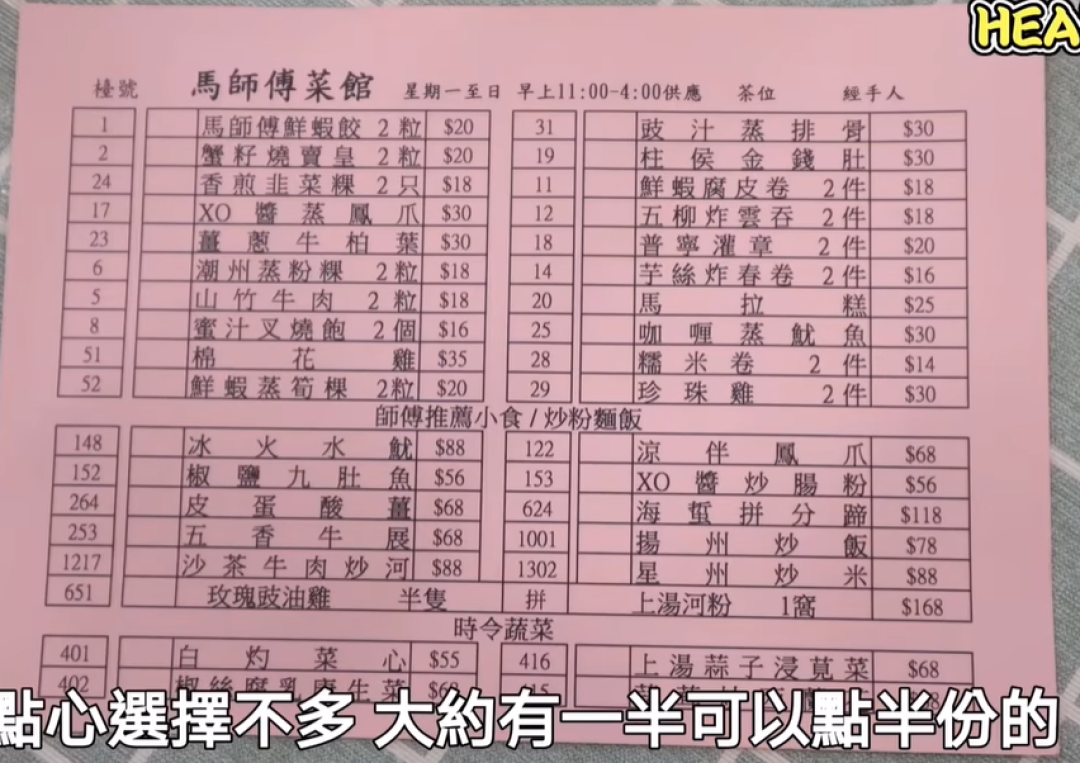 HEA
檯號 馬師傅菜館 星期一至日 早上11:00-4:00供應 茶位 經手人
1 馬師傅鮮蝦餃 2粒 $20 31 豉汁蒸排骨 $30
2 蟹籽燒賣皇 2粒 $20 19 柱侯金錢肚 $30
24 香煎韭菜粿 2只 $18 11 鮮蝦腐皮卷 2件 $18
17 XO醬蒸鳳爪 $30 12 五柳炸雲吞 2件 $18
23 薑蔥牛柏葉 $30 18 普寧灌章 2件 $20
6 潮州蒸粉粿 2粒 $18 14 芋絲炸春卷 2件 $16
5 山竹牛肉 2粒 $18 20 馬拉糕 $25
8 蜜汁叉燒飽 2個 $16 25 咖喱蒸魷魚 $30
51 棉花雞 $35 28 糯米卷 2件 $14
52 鮮蝦蒸筍棵 2粒 $20 29 珍珠雞 2件 $30
師傅推薦小食/炒粉麵飯
148 冰火水魷 $88 122 涼伴鳳爪 $68
152 椒鹽九肚魚 $56 153 XO醬炒腸粉 $56
264 皮蛋酸薑 $68 624 海蜇拼分蹄 $118
253 五香牛展 $68 1001 揚州炒飯 $78
1217 沙茶牛肉炒河 $88 1302 星州炒米 $88
651 玫瑰豉油雞 半隻 拼 上湯河粉 1窩 $168
時令蔬菜
401 白灼菜心 $55 416 上湯蒜子浸莧菜 $68
402 椒絲腐乳唐生菜
點心選擇不多 大約有一半可以點半份的